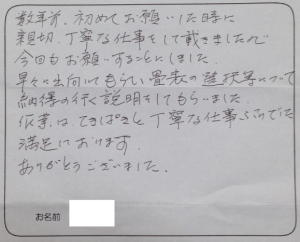 数年前、初めてお願いした時に
親切、丁寧な仕事をして戴きましたんで
今回もお願いすることにしました。
早々に出向いてもらい畳表の選択等について
納得の行く説明をしてもらいました。
作業は、てきぱきと丁寧な仕事ぶりでした
満足しております。
ありがとうございました。
お名前